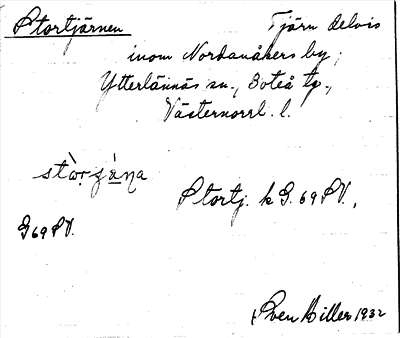 Stortjärnen Tjärn delvis
inom Nordanåkers by,
Ytterlännäs sn., Boteå tg.,
Västernorrl. l.
stòrʒǻna
Stortj. k G. 69 SV.,
G69SV.
Sven Hiller 1932